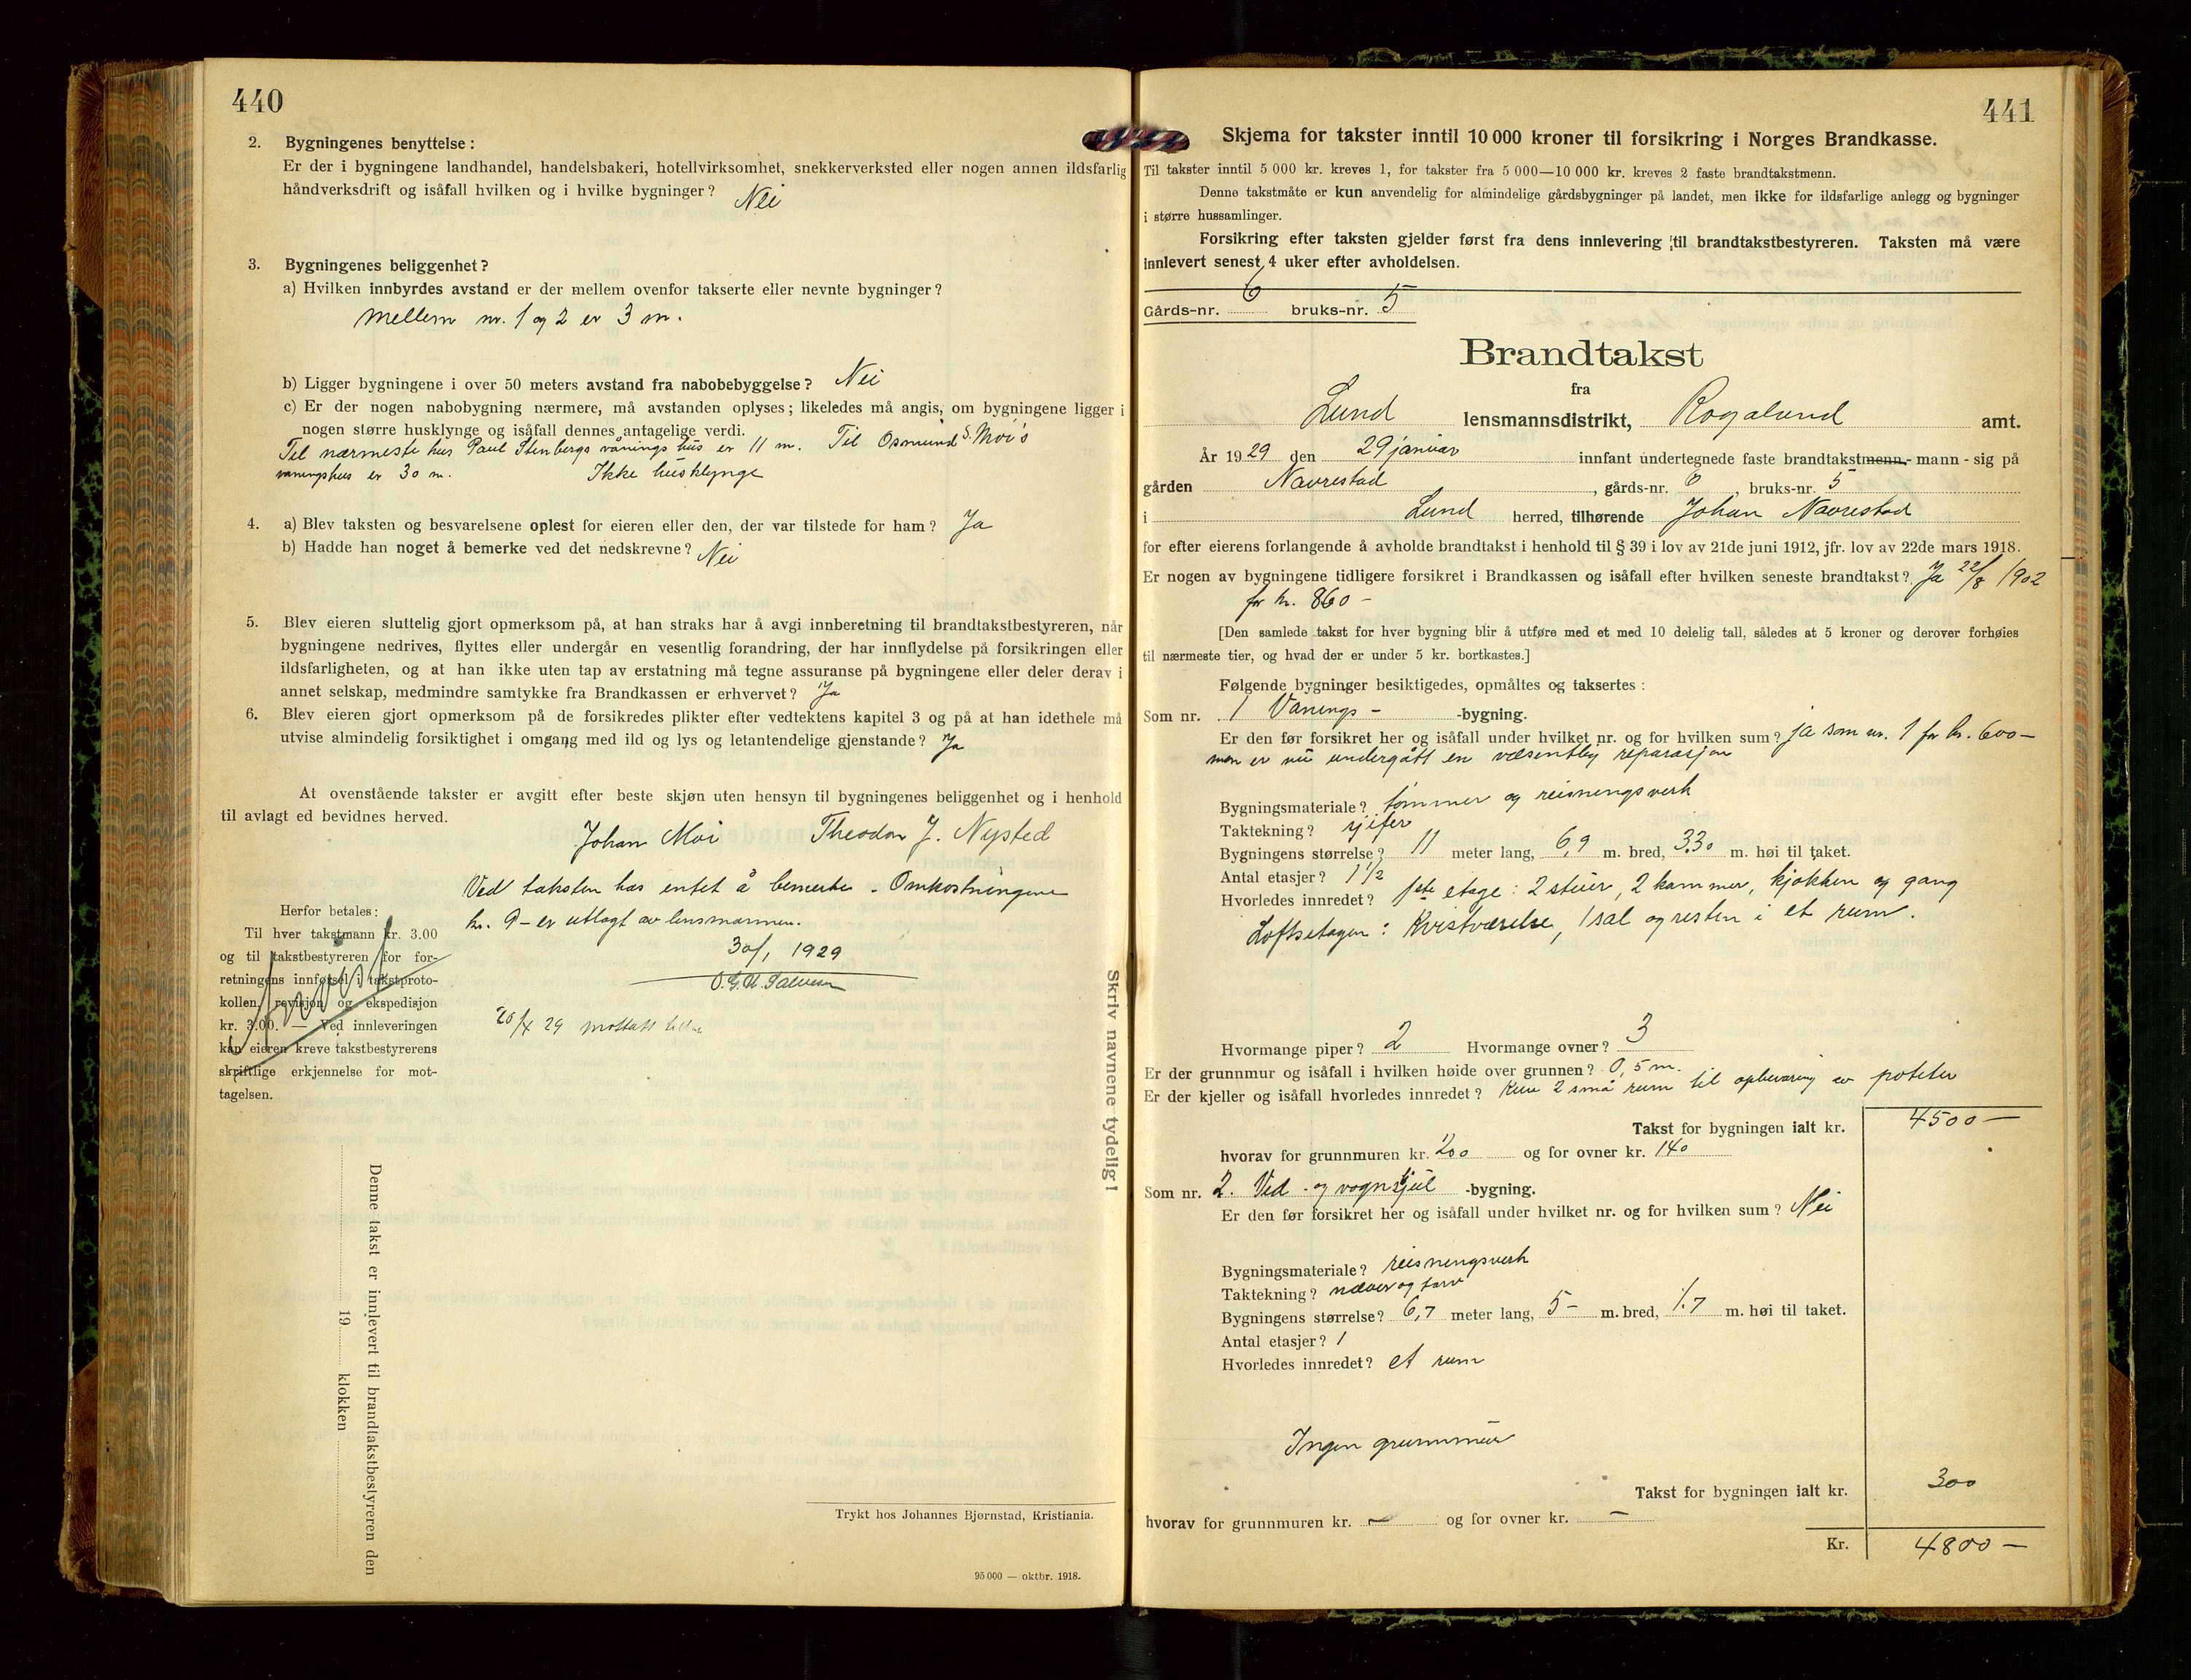 440
2. Bygningenes benyttelse:
Er der i bygningene landhandel, handelsbakeri, hotellvirksomhet, snekkerverksted eller nogen annen ildsfarlig
håndverksdrift og isåfall hvilken og i hvilke bygninger? Nei
3. Bygningenes beliggenhet?
a) Hvilken innbyrdes avstand er der mellem ovenfor takserte eller nevnte bygninger?
mellem nr. 1 og 2 er 3 m.
b) Ligger bygningene i over 50 meters avstand fra nabobebyggelse? Nei
c) Er der nogen nabobygning nærmere, må avstanden oplyses; likeledes må angis, om bygningene ligger i
nogen større husklynge og isåfall dennes antagelige verdi.
Til nærmeste hus Paul Stenbergs vånings hus er 11 m. Til Osmund S. Moi's
vaningshus er 30 m. Ikke husklynge
4. a) Blev taksten og besvarelsene oplest for eieren eller den, der var tilstede for ham? Ja
b) Hadde han noget å bemerke ved det nedskrevne? Nei
5. Blev eieren sluttelig gjort opmerksom på, at han straks har å avgi innberetning til brandtakstbestyreren, når
bygningene nedrives, flyttes eller undergår en vesentlig forandring, der har innflydelse på forsikringen eller
ildsfarligheten, og at han ikke uten tap av erstatning må tegne assuranse på bygningene eller deler derav i
annet selskap, medmindre samtykke fra Brandkassen er erhvervet? Ja
6. Blev eieren gjort opmerksom på de forsikredes plikter efter vedtektens kapitel 3 og på at han idethele må
utvise almindelig forsiktighet i omgang med ild og lys og letantendelige gjenstande? Ja
At ovenstående takster er avgitt efter beste skjøn uten hensyn til bygningenes beliggenhet og i henhold
til avlagt ed bevidnes herved.
Johan Moi Theodor J. Nysted
Ved taksten has entet å bemerke. Omkostningene
kr. 9- er utlagt av lensmannen.
30/1 1929
Herfor betales:
Til hver takstmann kr. 3.00
og til takstbestyreren for for-
retningens innførsel i takstproto-
kollen, revisjon og ekspedisjon
kr. 3.00. — Ved innleveringen
kan eieren kreve takstbestyrerens
skriftlige erkjennelse for mot-
tagelsen.
29 mottatt
Denne takst er innlevert til brandtakstbestyreren den
19 klokken
Skriv navnene tydelig!
Trykt hos Johannes Bjørnstad, Kristiania.
95 000 — oktbr. 1918.
441
Skjema for takster inntil 10 000 kroner til forsikring i Norges Brandkasse.
Til takster inntil 5 000 kr. kreves 1, for takster fra 5 000—10 000 kr. kreves 2 faste brandtakstmenn.
Denne takstmåte er kun anvendelig for almindelige gårdsbygninger på landet, men ikke for ildsfarlige anlegg og bygninger
i større hussamlinger.
Forsikring efter taksten gjelder først fra dens innlevering til brandtakstbestyreren. Taksten må være
innlevert senest 4 uker efter avholdelsen.
Gårds-nr. 6 bruks-nr. 5
Brandtakst
fra
Lund lensmannsdistrikt, Rogaland amt.
År 1929 den 29 januar innfant undertegnede faste brandtakstmenn - mann - sig på
gården Navrestad, gårds-nr. 6, bruks-nr. 5
i Lund herred, tilhørende Johan Navrestad
for efter eierens forlangende å avholde brandtakst i henhold til § 39 i lov av 21de juni 1912, jfr. lov av 22de mars 1918.
Er nogen av bygningene tidligere forsikret i Brandkassen og isåfall efter hvilken seneste brandtakst? Ja 22/8 1902
for kr. 860 -
[Den samlede takst for hver bygning blir å utføre med et med 10 delelig tall, således at 5 kroner og derover forhøies
til nærmeste tier, og hvad der er under 5 kr. bortkastes.]
Følgende bygninger besiktigedes, opmåltes og taksertes:
Som nr. 1 Vanings - -bygning.
Er den før forsikret her og isåfall under hvilket nr. og for hvilken sum? ja som nr. 1 for kr. 600 -
men er nu undergått en væsentlig reparasjon
Bygningsmateriale? tømmer og reisningsverk
Taktekning? sjifer
Bygningens størrelse? 11 meter lang, 6,9 m. bred, 3.30 m. høi til taket.
Antal etasjer? 1 1/2
Hvorledes innredet? 1ste etage: 2 stuer, 2 kammer, kjøkken og gang
Loftsetagen: Kvistværelse, 1 sal og resten i et rum.
Hvormange piper? 2 Hvormange ovner? 3
Er der grunnmur og isåfall i hvilken høide over grunnen? 0,5 m.
Er der kjeller og isåfall hvorledes innredet? Kun 2 små rum til opbevaring av poteter
Takst for bygningen ialt kr. 4500 —
hvorav for grunnmuren kr. 200 og for ovner kr. 140
Som nr. 2. Ved - og vognskjul -bygning.
Er den før forsikret her og isåfall under hvilket nr. og for hvilken sum? Nei
Bygningsmateriale? reisningsverk
Taktekning? næver og torv
Bygningens størrelse? 6,7 meter lang, 5 - m. bred, 1.7 m. høi til taket.
Antal etasjer? 1
Hvorledes innredet? et rum
Ingen grunnmur
Takst for bygningen ialt kr. 300
hvorav for grunnmuren kr. — og for ovner kr. —
Kr. 4800 —